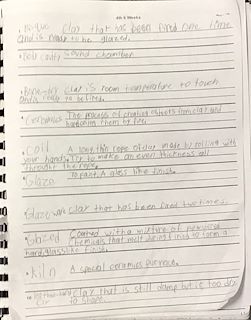 Bisque clay that has been fired one time
and is ready to be glazed.
Body cavity sound chamber
Bone-dry clay is room temperature to touch
and is ready to be fired.
Ceramics The process of creating objects from clay and
hardening them by fire.
Coil A long thin rope of clay made by rolling with
your hands. Try to make an even thickness all
throughout the rope.
Glaze To paint. A glass like finish.
Glaze ware clay that has been fired two times.
Glazed Coated with a mixture of powdered
chemicals that melt during firing to form a
hard, glass like finish.
Kiln A special ceramics furnace.
clay that is still damp but is too dry
to shape.